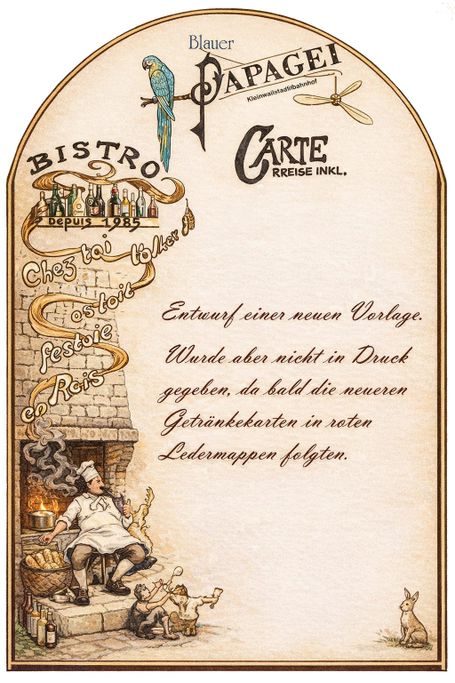 Blauer
PAPAGEI
Kleinwallstadtlbahnhof
CARTE
RREISE INKL.
BISTRO
Depuis 1985
Chez toi
Völker
as toit
festoie
en Rois
Entwurf einer neuen Vorlage.
Wurde aber nicht in Druck
gegeben, da bald die neueren
Getränkekarten in roten
Ledermappen folgten.